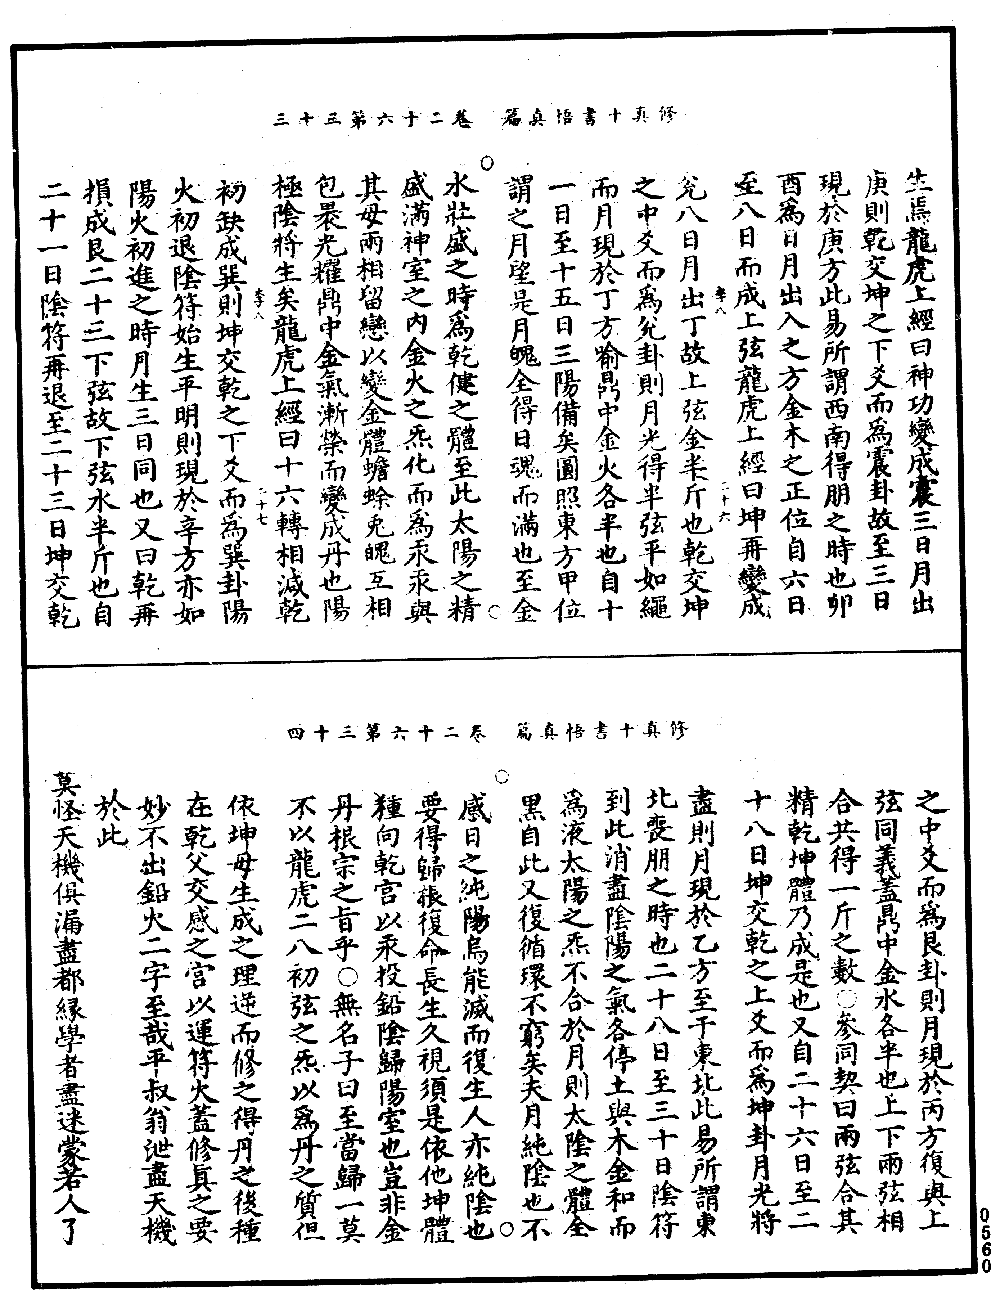 修真十書悟真篇　卷二十六第三十三
生焉龍虎上經曰神功變成震三日月出
庚則乾交坤之下爻而為震卦故至三日
現於庚方此易所謂西南得朋之時也卯
酉為日月出入之方金木之正位自六日
至八日而成上弦龍虎上經曰坤再變成
李八
二十六
兌八日月出丁故上弦金半斤也乾交坤
之中爻而為兌卦則月光得半弦平如繩
而月現於丁方喻鼎中金火各半也自十
一日至十五日三陽備矣圓照東方甲位
謂之月望是月魄全得日魂而滿也至金
○
水壯盛之時為乾健之體至此太陽之精
盛滿神室之內金火之炁化而為汞汞與
其母兩相留戀以變金體蟾蜍兎魄互相
包裹光耀鼎中金氣漸榮而變成丹也陽
極陰將生矣龍虎上經曰十六轉相減乾
李八
二十七
初缺成巽則坤交乾之下爻而為巽卦陽
火初退陰符始生平明則現於辛方亦如
陽火初進之時月生三日同也又曰乾再
損成艮二十三下弦故下弦水半斤也自
二十一日陰符再退至二十三日坤交乾
修真十書悟真篇　卷二十六第三十四
之中爻而為艮卦則月現於丙方復與上
弦同義蓋鼎中金水各半也上下兩弦相
合共得一斤之數○參同契曰兩弦合其
精乾坤體乃成是也又自二十六日至二
十八日坤交乾之上爻而為坤卦月光將
盡則月現於乙方至于東北此易所謂東
北喪朋之時也二十八日至三十日陰符
到此消盡陰陽之氣各停土與木金和而
為液太陽之炁不合於月則太陰之體全
黑自此又復循環不窮矣夫月純陰也不
○
感日之純陽烏能滅而復生人亦純陰也
要得歸根復命長生久視須是依他坤體
種向乾宮以汞投鉛陰歸陽室也豈非金
丹根宗之旨乎○無名子曰至當歸一莫
不以龍虎二八初弦之炁以為丹之質但
依坤母生成之理逆而修之得丹之後種
在乾父交感之宮以運符火蓋修真之要
妙不出鉛火二字至哉平叔翁泄盡天機
於此
莫怪天機俱漏盡都緣學者盡迷蒙若人了
0560